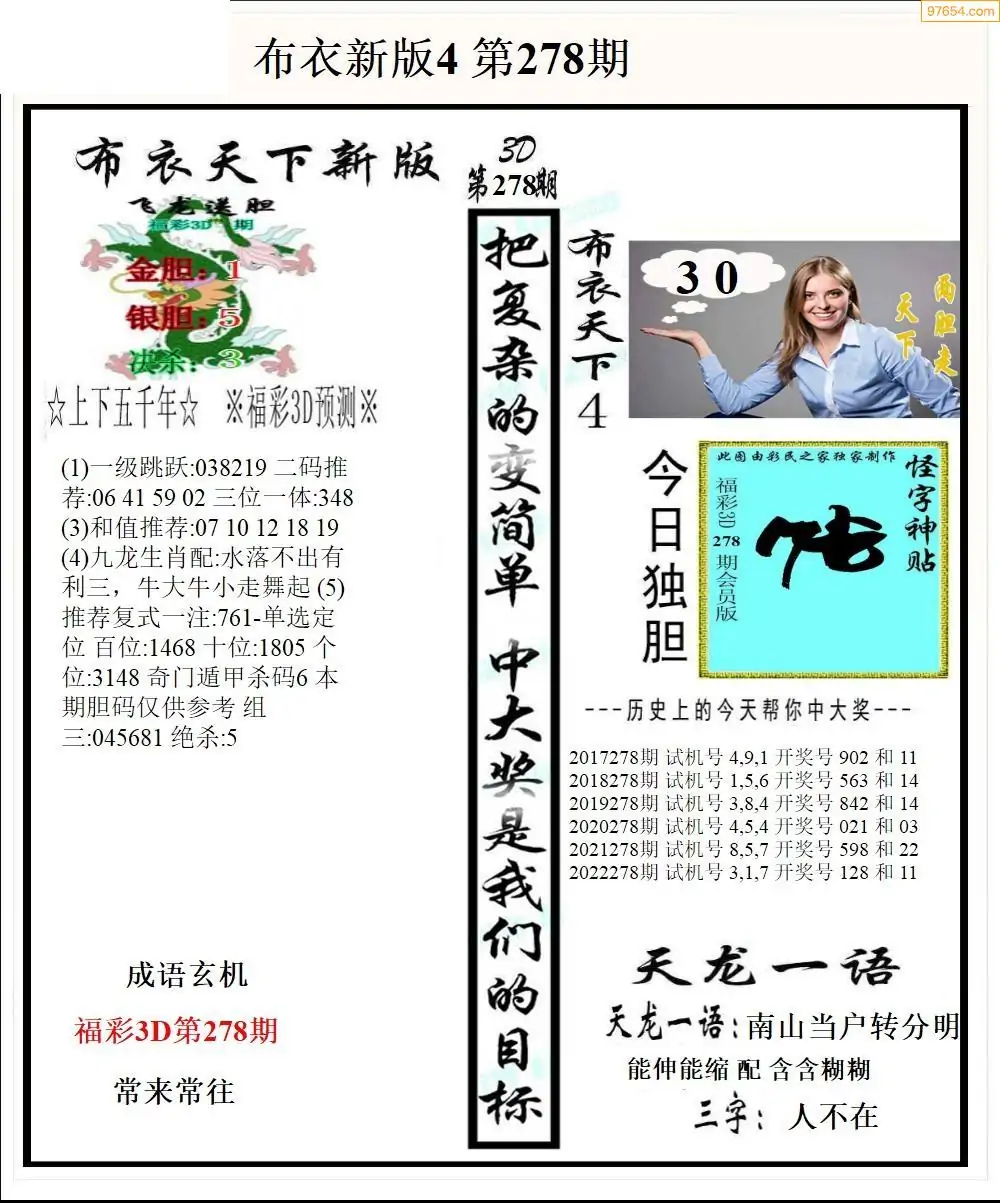 97654.com
布衣新版4 第278期
布衣天下新版
飞龙送胆
福彩3D 期
金胆：1
银胆：5
决杀：3
☆上下五千年☆ ※福彩3D预测※
(1)一级跳跃:038219 二码推
荐:06 41 59 02 三位一体:348
(3)和值推荐:07 10 12 18 19
(4)九龙生肖配:水落不出有
利三，牛大牛小走舞起 (5)
推荐复式一注:761-单选定
位 百位:1468 十位:1805 个
位:3148 奇门遁甲杀码6 本
期胆码仅供参考 组
三:045681 绝杀:5
成语玄机
福彩3D第278期
常来常往
3D
第278期
把复杂的变简单 中大奖是我们的目标
布衣天下4
30
两胆走
天下
今日独胆
此图由彩民之家独家制作
怪字神贴
福彩3D 278 期会员版
---历史上的今天帮你中大奖---
2017278期 试机号 4,9,1 开奖号 902 和 11
2018278期 试机号 1,5,6 开奖号 563 和 14
2019278期 试机号 3,8,4 开奖号 842 和 14
2020278期 试机号 4,5,4 开奖号 021 和 03
2021278期 试机号 8,5,7 开奖号 598 和 22
2022278期 试机号 3,1,7 开奖号 128 和 11
天龙一语
天龙一语:南山当户转分明
能伸能缩 配 含含糊糊
三字: 人不在